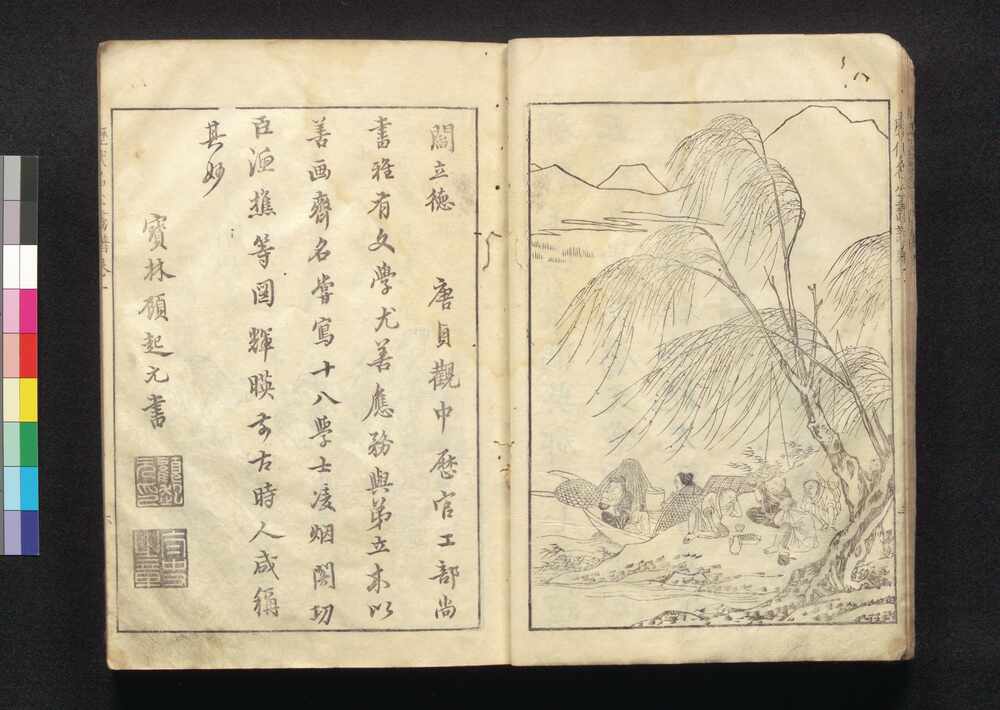 閻立德　唐貞觀中歷官工部尚
書雅有文學尤善應務與弟立本以
善画齊名嘗寫十八學士凌烟閣功
臣漁樵等图輝暎前古時人咸稱
其妙
寳林顧起元書